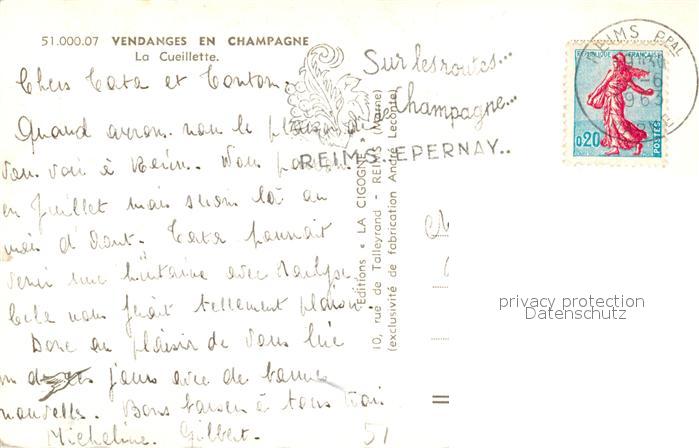 51.000.07 VENDANGES EN CHAMPAGNE
La Cueillette.
Chers Tata et Tonton.
Quand aurons nous le plaisir de
vous voir à Reims. Nous partons
en Juillet mais serons là au
mois d'Août. Tata pourrait
venir une huitaine avec
Cela nous ferait tellement plaisir.
Donc au plaisir de vous lire
un de ces jours avec de bonnes
nouvelles. Bons baisers à tous trois
Micheline. Gilbert.
51
Sur les routes...
de champagne...
REIMS..EPERNAY..
Editions « LA CIGOGNE »
10, rue de Talleyrand - REIMS (Marne)
(exclusivité de fabrication André Leconte)
REIMS PPAL
1963
REPUBLIQUE FRANÇAISE
0,20
POSTES
privacy protection
Datenschutz